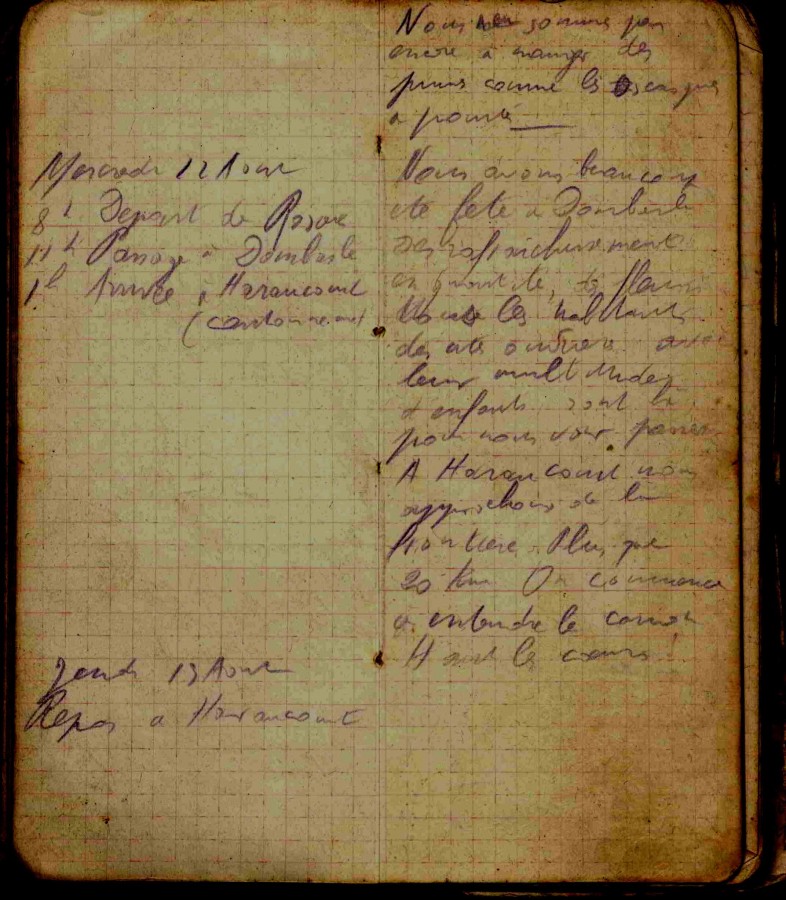 Mercredi 12 Aout
8h Depart de Rosiere
11h Passage à Dombasle
1h Arrivée à Haraucourt
(cantonnement)
Jeudi 13 Aout
Repos a Haraucourt
Nous ne sommes pas
encore à manger des
comme les
a pointe
Nous avons beaucoup
été fété à Dombasle
Des rafraichissements
en quantité, des fleurs
Tous les habitants
des cités ouvrieres avec
leur multitude
d enfants sont là
pour nous voir passer
A Haraucourt nous
approchons de la
frontiere. Plus que
20 km On commence
a entendre le canon
Haut les cœurs!